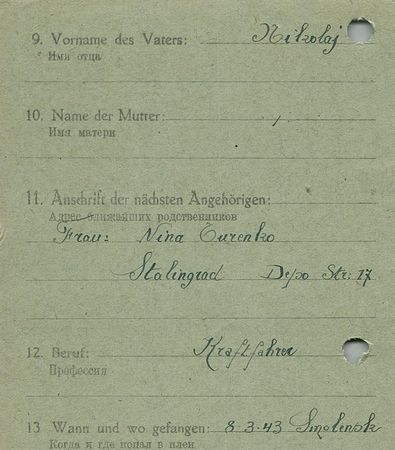 9. Vorname des Vaters: Nikolaj
Имя отца
10. Name der Mutter: /
Имя матери
11. Anschrift der nächsten Angehörigen:
Адрес ближайших родственников
Frau: Nina Curenko
Stalingrad Depo Str: 17
12. Beruf: Kraftfahrer
Профессия
13 Wann und wo gefangen: 8.3.43 Smolensk
Когда и где попал в плен